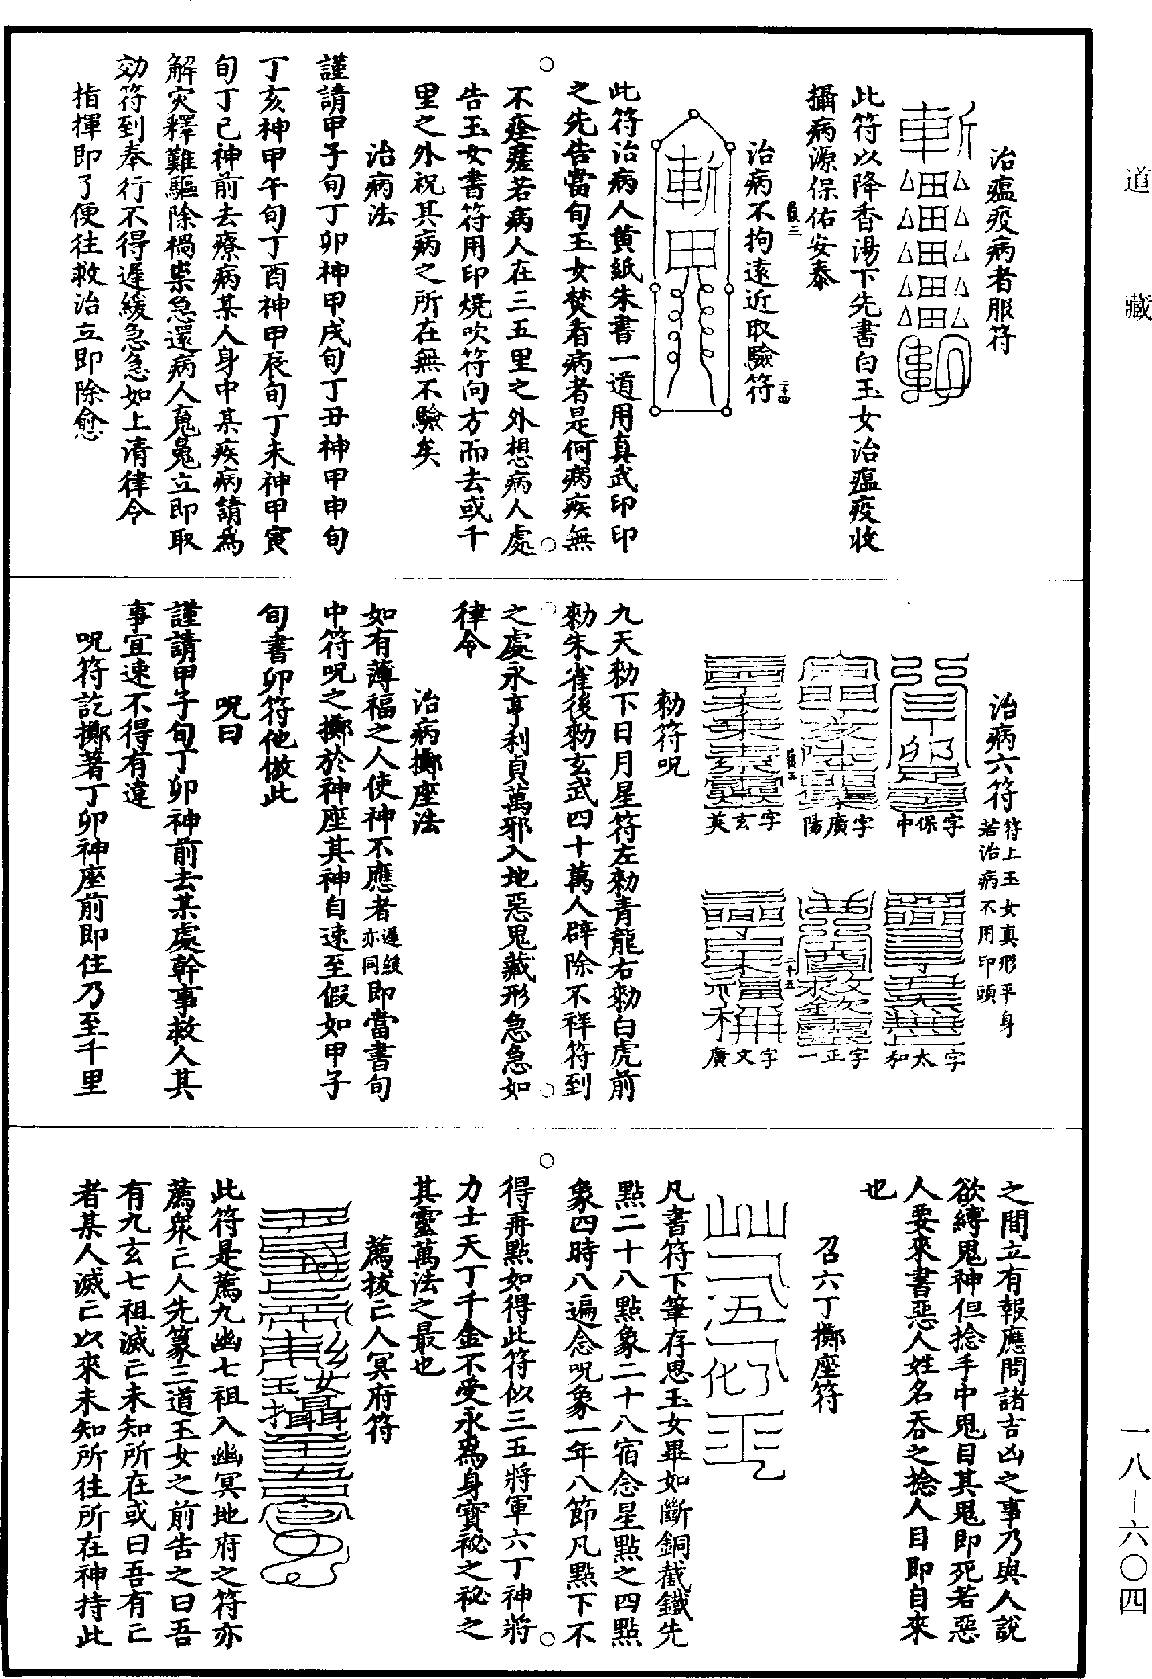 道藏
治瘟疫病者服符
此符以降香湯下先書白玉女治瘟疫收
攝病源保佑安泰
治病不拘遠近取驗符
此符治病人黃紙朱書一道用真武印印
之先告當旬玉女焚看病者是何病疾無
不痊瘥若病人在三五里之外想病人處
告玉女書符用印燒吹符向方而去或千
里之外祝其病之所在無不驗矣
治病法
謹請甲子旬丁卯神甲戌旬丁丑神甲申旬
丁亥神甲午旬丁酉神甲辰旬丁未神甲寅
旬丁巳神前去療病某人身中某疾病請為
解灾釋難驅除禍祟急還病人䰟魄立即取
効符到奉行不得遲緩急急如上清律令
指揮即了便往救治立即除愈
治病六符
符上玉女真形平身
若治病不用印頭
字保中
字廣陽
字玄英
字太和
字正一
字文廣
勑符呪
九天勑下日月星符左勑青龍右勑白虎前
勑朱雀後勑玄武四十萬人辟除不祥符到
之處永亨利貞萬邪入地惡鬼藏形急急如
律令
治病擲座法
如有薄福之人使神不應者遲緩亦同即當書旬
中符呪之擲於神座其神自速至假如甲子
旬書卯符他倣此
呪曰
謹請甲子旬丁卯神前去某處幹事救人其
事宜速不得有違
呪符訖擲著丁卯神座前即住乃至千里
之間立有報應問諸吉凶之事乃與人說
欲縛鬼神但捻手中鬼目其鬼即死若惡
人要來書惡人姓名吞之捻人目即自來
也
召六丁擲座符
凡書符下筆存思玉女畢如斷銅截鐵先
點二十八點象二十八宿念星點之四點
象四時八遍念呪象一年八節凡點下不
得再點如得此符似三五將軍六丁神將
力士天丁千金不受永為身寶祕之祕之
其靈萬法之最也
薦拔亡人冥府符
此符是薦九幽七祖入幽冥地府之符亦
薦眾亡人先篆三道玉女之前告之曰吾
有九玄七祖滅亡未知所在或曰吾有亡
者某人滅亡以來未知所往所在神持此
一八—六〇四